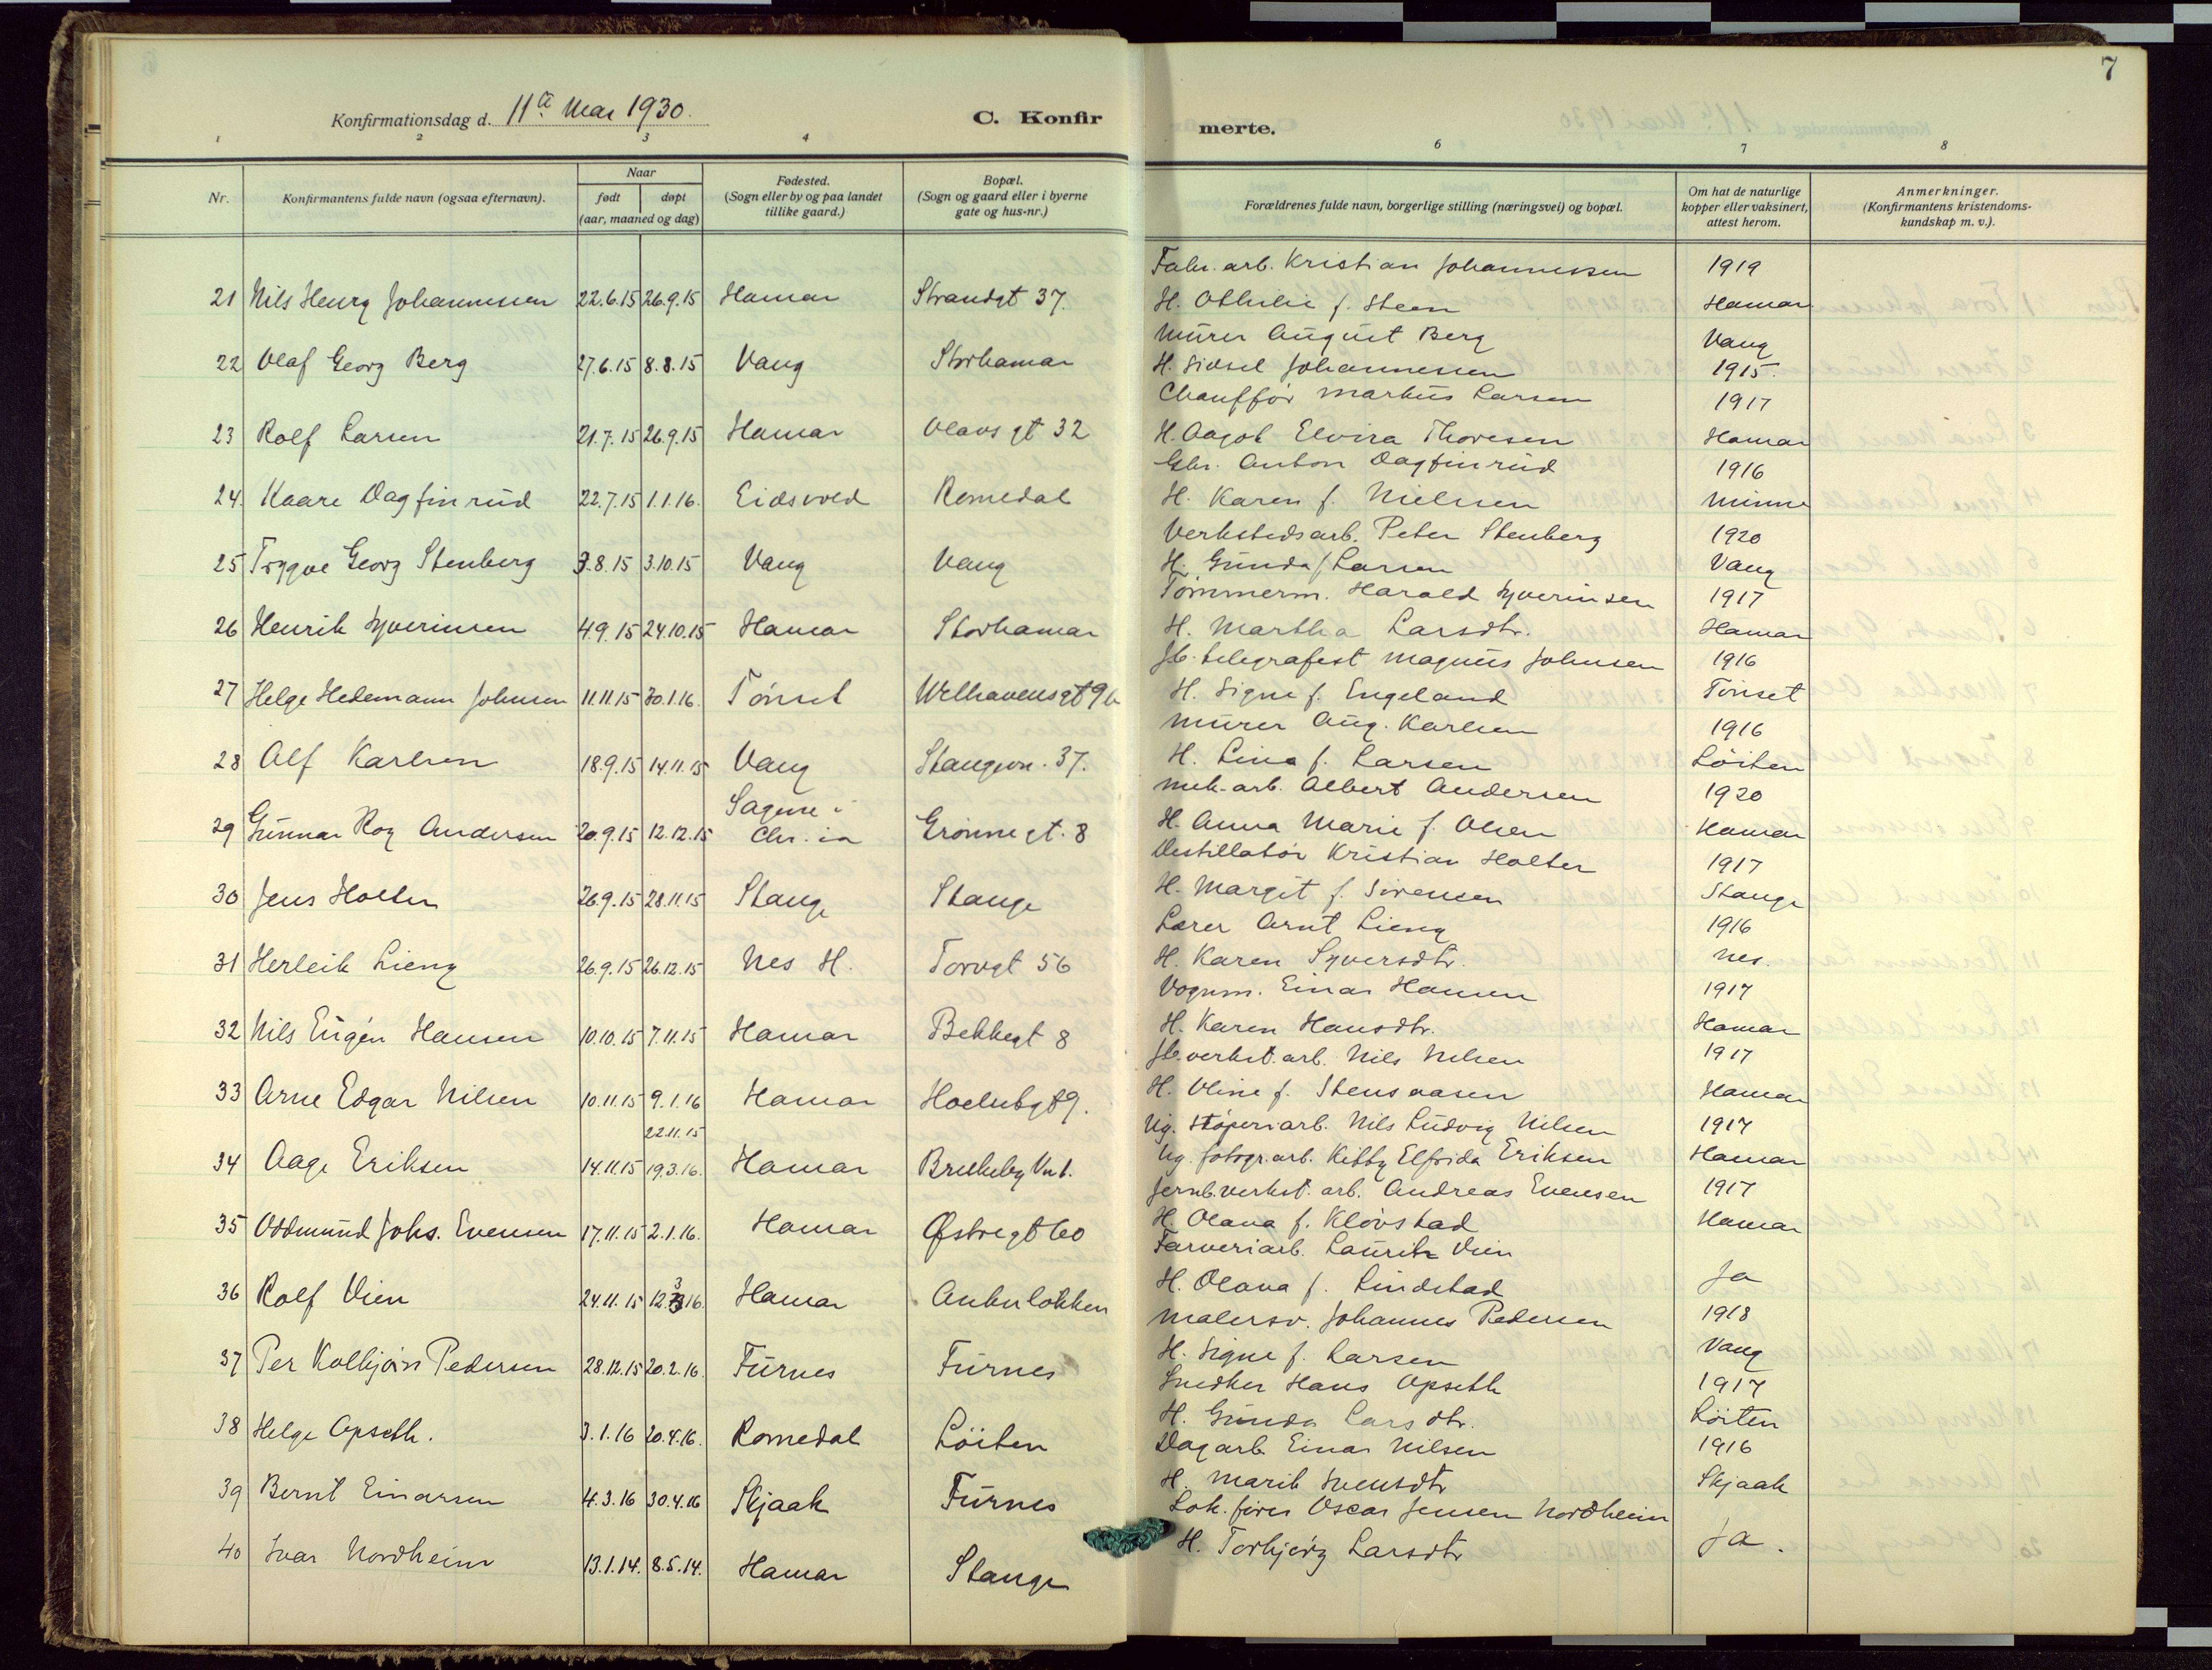 7
Konfirmationsdag d. 11te Mai 1930.
C. Konfirmerte.
1 2 3 4 6 7 8
Nr.
Konfirmantens fulde navn (ogsaa efternavn).
Naar
født døpt
(aar, maaned og dag)
Fødested.
(Sogn eller by og paa landet
tillike gaard.)
Bopæl.
(Sogn og gaard eller i byerne
gate og hus-nr.)
Forældrenes fulde navn, borgerlige stilling (næringsvei) og bopæl.
Om hat de naturlige
kopper eller vaksinert,
attest herom.
Anmerkninger.
(Konfirmantens kristendoms-
kundskap m. v.).
Fabr. arb. Kristian Johannessen 1919
21 Nils Henry Johannessen 22.6.15 26.9.15 Hamar Strandgt 37. H. Othilie f. Steen Hamar
Murer August Berg Vang
22 Olaf Georg Berg 27.6.15 8.8.15 Vang Storhamar H. Sidsel Johannessen 1915.
Chauffør Markus Larsen 1917
23 Rolf Larsen 21.7.15 26.9.15 Hamar Olavsgt 32 H. Aagot Elvira Thoresen Hamar
Gbr. Anton Dagfinrud 1916
24. Kaare Dagfinrud 22.7.15 1.1.16. Eidsvold Romedal H. Karen f. Nielsen Minne
Verkstedsarb. Peter Stenberg 1920
25 Trygve Georg Stenberg 3.8.15 3.10.15 Vang Vang H. Gunda f. Larsen Vang
Tømmerm. Harald Syverinsen 1917
26 Henrik Syverinsen 4.9.15 24.10.15 Hamar Storhamar H. Martha Larsdtr. Hamar
Jb. telegrafist Magnus Johnsen 1916
27 Helge Hedemann Johnsen 11.11.15 30.1.16. Tönset Welhavensgt 9b H. Signe f. Engeland Tönset
Murer Aug. Karlsen 1916
28 Alf Karlsen 18.9.15 14.11.15 Vang Stangevn. 37. H. Lina f. Larsen Löiten
Sagene i mek. arb. Albert Andersen 1920
29 Gunnar Roy Andersen 20.9.15 12.12.15 Chr.ia Grönnegt. 8 H. Anna Marie f. Olsen Hamar
Destillatör Kristian Holter 1917
30 Jens Holter 26.9.15 28.11.15 Stange Stange H. Margit f. Sörensen Stange
Lærer Arnt Lieng 1916
31 Herleik Lieng 26.9.15 26.12.15 Nes H. Torvgt 56 H. Karen Syversdtr. Nes.
Vognm. Einar Hansen 1917
32 Nils Eugén Hansen 10.10.15 7.11.15 Hamar Bekkegt 8 H. Karen Hansdtr. Hamar
Jb. verkst. arb. Nils Nilsen 1917
33 Arne Edgar Nilsen 10.11.15 9.1.16 Hamar Holsetgt 9. H. Oline f. Stensaasen Hamar
22.11.15 Ug. støperiarb. Nils Ludvig Nilsen 1917
34 Aage Eriksen 14.11.15 19.3.16. Hamar Brekkeby Vn 1. Ug. fotogr. arb. Kitty Elfrida Eriksen Hamar
Jernb. verkst. arb. Andreas Evensen 1917
35 Oddmund Johs. Evensen 17.11.15 2.1.16. Hamar Østregt 60 H. Olava f. Klövstad Hamar
Farveriarb. Lauritz Vien
36 Rolf Vien 24.11.15 12.3.16. Hamar Ankerløkken H. Olava f. Lindstad Ja
Malersv. Johannes Pedersen 1918
37 Per Kolbjörn Pedersen 28.12.15 20.2.16. Furnes Furnes H. Signe f. Larsen Vang
Snedker Hans Opseth 1917
38 Helge Opseth. 3.1.16 20.4.16. Romedal Löiten H. Gunda Larsdtr. Löiten
Dagarb. Einar Nilsen 1916
39 Bernt Einarsen 4.3.16 30.4.16 Skjaak Furnes H. Marit Svensdtr Skjaak
Lok. fører Oscar Jensen Nordheim
40 Ivar Nordheim 13.1.14. 8.5.14. Hamar Stange H. Torbjörg Larsdtr Ja.